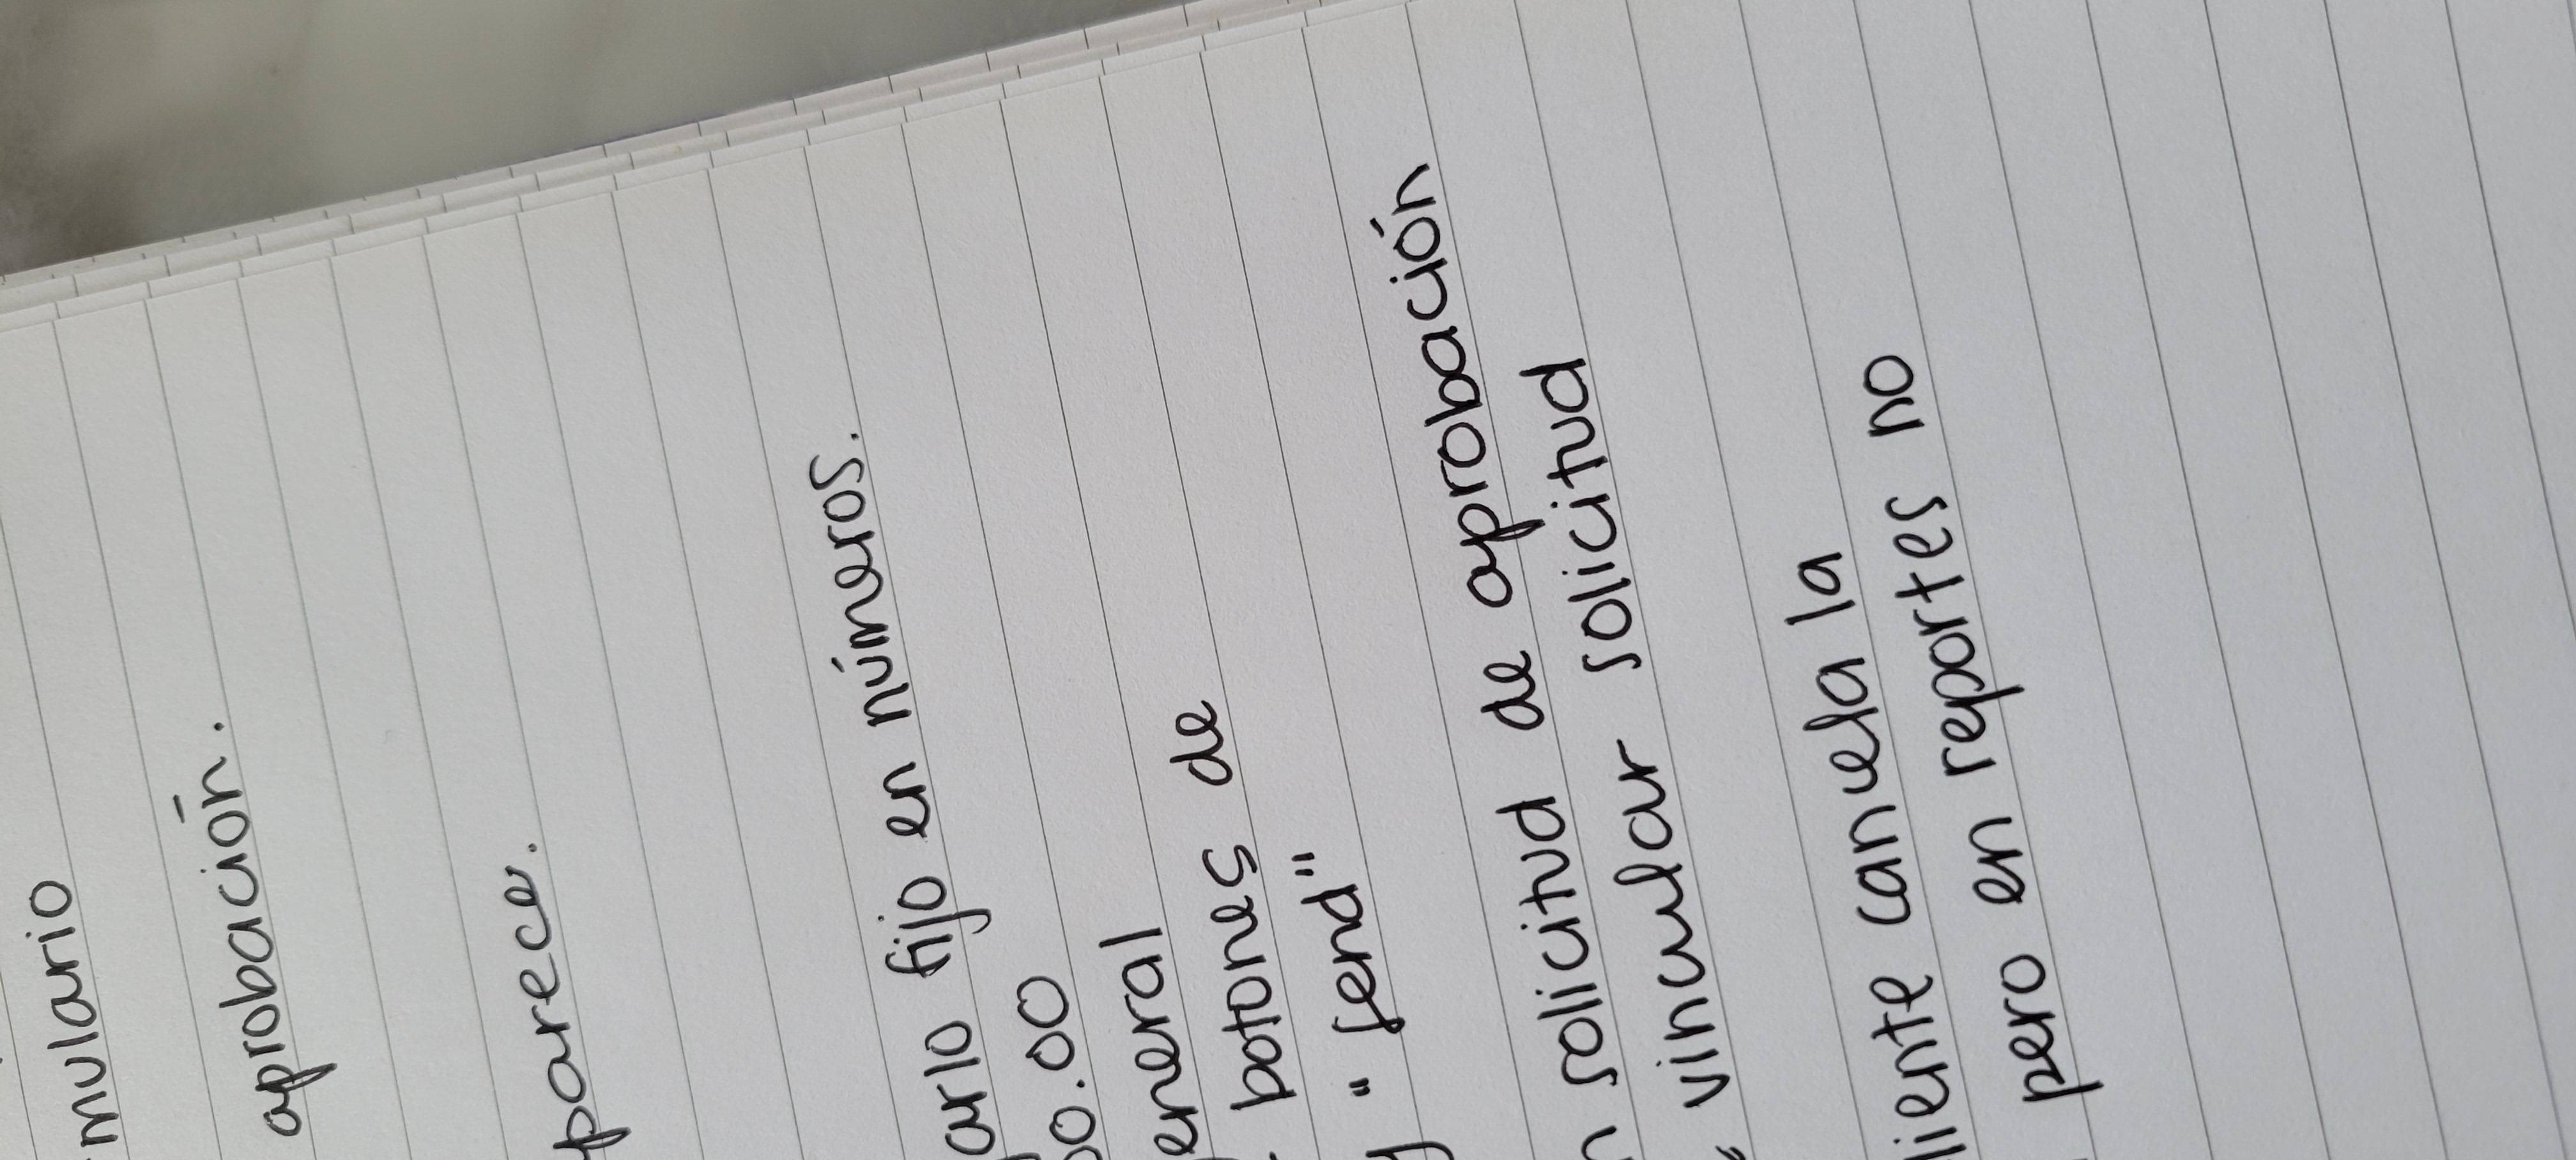 mulario
aprobación.
parece.
ario fijo en números.
00.00
eneral
botones de
y " send"
n solicitud de aprobación
" vincular solicitud
liente cancela la
pero en reportes no